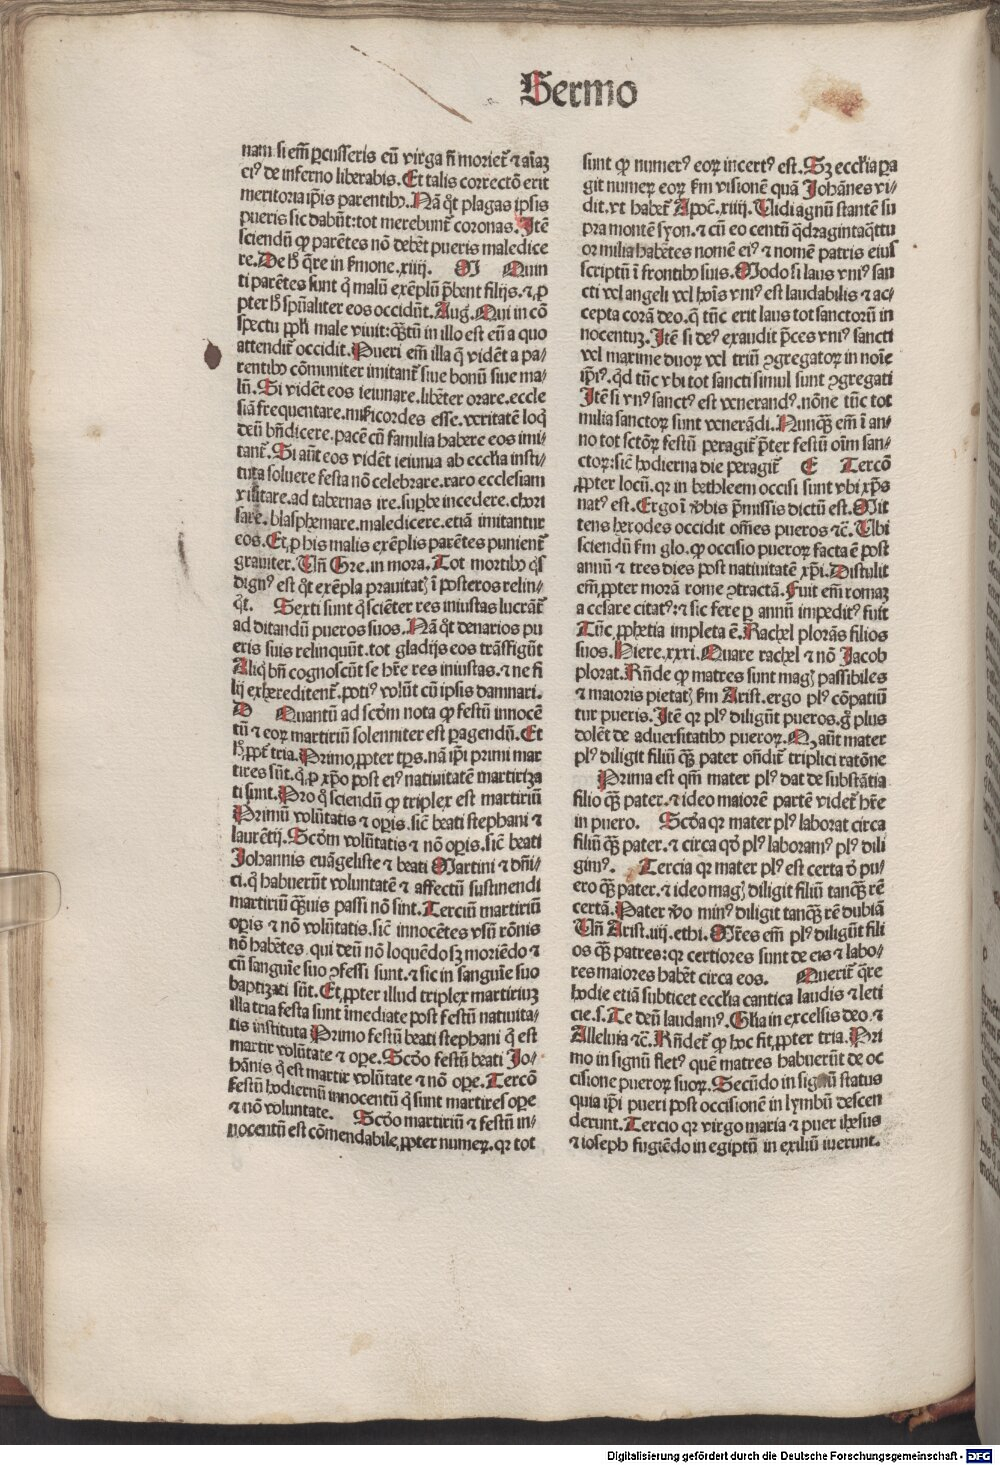 Sermo
nam. si em̄ ꝑcusseris eū virga n̄ moriet᷑ ⁊ aīaꝫ
ei⁹ de inferno liberabis. Et talis correctō erit
meritoria ip̄is parentibꝰ. Nā qͦt plagas ipsis
pueris sic dabūt: tot merebunt᷑ coronas. Itē
sciendū ꝙ parētes nō debēt pueris maledice
re. De hͦ q̄re in ẜmone. xiiij. M Quin
ti parētes sunt q̄ malū exēplū p̄bent filijs. ⁊ ꝓ
pter hͦ spūaliter eos occidūt. Aug. Qui in cō
spectu ppl̓i male viuit: qͣꝫtū in illo est eū a quo
attendit᷑ occidit. Pueri em̄ illa q̄ vidēt a pa⸗
rentibꝰ cōmuniter imitant᷑ siue bonū siue ma⸗
lū. Si vidēt eos ieiunare. libēter orare. eccle
siā frequentare. mīẜicordes esse. veritatē loqͥ
deū bn̄dicere. pacē cū familia habere eos imi⸗
tant᷑. Si aūt eos vidēt ieiunia ab eccl̓ia insti⸗
tuta soluere festa nō celebrare. raro ecclesiam
visitare. ad tabernas ire. suꝑbe incedere. chori
sare. blasphemare. maledicere. etiā imitantur
eos. Et ꝓ his malis exēplis parētes punient᷑
grauiter. Vn̄ Gre. in mora. Tot mortibꝰ qͥs
dign⁹ est qͦt exēpla prauitatꝭ ī posteros relin⸗
qͥt. Sexti sunt qͥ sciēter res iniustas lucrāt᷑
ad ditandū pueros suos. Nā qͦt denarios pu
eris suis relinquūt. tot gladijs eos trāsfigūt
Aliqͥ bn̄ cognoscūt se hr̄e res iniustas. ⁊ ne fi
lij exhereditent᷑. poti⁹ volūt cū ipsis damnari.
D Quantū ad scd̓m nota ꝙ festū innocē
tū ⁊ eoꝝ martiriū solenniter est ꝑagendū. Et
hͦ ꝓpt᷑ tria. Primo ꝓpter tp̄s. nā ip̄i primi mar
tires sūt. qͥ ꝓ xp̄o post ei⁹ natiuitatē martiriza
ti sunt. Pro qͦ sciendū ꝙ triplex est martiriū
Primū volūtatis ⁊ oꝑis. sic̄ beati stephani ⁊
laurētij. Scd̓m volūtatis ⁊ nō oꝑis. sic̄ beati
Johannis euāgeliste ⁊ beati Martini ⁊ dn̄i⸗
ci. qͥ habuerūt voluntatē ⁊ affectū sustinendi
martiriū qͣꝫuis passi nō sint. Terciū martiriū
oꝑis ⁊ nō volūtatis. sic̄ innocētes vsū rōnis
nō habētes. qui deū nō loquēdo sꝫ moriēdo ⁊
cū sanguīe suo ꝯfessi sunt. ⁊ sic in sanguīe suo
baptizati sūt. Et ꝓpter illud triplex martiriuꝫ
illa tria festa sunt īmediate post festū natiuita⸗
tis instituta Primo festū beati stephani qͥ est
martir volūtate ⁊ oꝑe. Scd̓o festū beati Jo⸗
hānis qͥ est martir volūtate ⁊ nō oꝑe. Tercō
festū hodiernū innocentū qͥ sunt martires oꝑe
⁊ nō voluntate. Scd̓o martiriū ⁊ festū in⸗
nocentū est cōmendabile ꝓpter numeꝝ. qꝛ tot
sunt ꝙ numer⁹ eoꝝ incert⁹ est. Sꝫ eccl̓ia ꝑa
git numeꝝ eoꝝ ẜm visionē quā Johānes vi⸗
dit. vt habet᷑ Apoc̄. xiiij. Vidi agnū stantē su
pra montē syon. ⁊ cū eo centū qͣdragintaqͣttu
or milia habētes nomē ei⁹ ⁊ nomē patris eius
scriptū ī frontibꝰ suis. Modo si laus vni⁹ san
cti vel angeli vel hoīs vni⁹ est laudabilis ⁊ ac⸗
cepta corā deo. q̄ tūc erit laus tot sanctorū in
nocentuꝫ. Itē si de⁹ exaudit p̄ces vni⁹ sancti
vel maxime duoꝝ vel triū ꝯgregatoꝝ in noīe
ip̄i⁹. qͥd tūc vbi tot sancti simul sunt ꝯgregati
Itē si vn⁹ sanct⁹ est venerand⁹. nōne tūc tot
milia sanctoꝝ sunt venerādi. Nunqͣꝫ em̄ ī an⸗
no tot sctōꝝ festū peragit᷑ p̄ter festū oīm san⸗
ctoꝝ: sic̄ hodierna die peragit᷑ E Tercō
ꝓpter locū. qꝛ in bethleem occisi sunt vbi xp̄s
nat⁹ est. Ergo ī v̓bis p̄missis dictū est. Mit
tens herodes occidit om̄es pueros ⁊c̄. Vbi
sciendū ẜm glo. ꝙ occisio pueroꝝ facta ē post
annū ⁊ tres dies post natiuitatē xp̄i. Distulit
em̄ ꝓpter morā rome ꝯtractā. Fuit em̄ romaꝫ
a cesare citat⁹: ⁊ sic fere ꝑ annū impedit⁹ fuit
Tūc ꝓphetia impleta ē. Rachel plorās filios
suos. Hiere. xxxi. Quare rachel ⁊ nō Jacob
plorat. Rn̄de ꝙ matres sunt magꝭ passibiles
⁊ maioris pietatꝭ ẜm Arist. ergo pl⁹ cōpatiū
tur pueris. Itē qꝛ pl⁹ diligūt pueros. gͦ plus
dolēt de aduersitatibꝰ pueroꝝ. Qꝙ aūt mater
pl⁹ diligit filiū qͣꝫ pater ondit᷑ triplici ratōne
Prima est qm̄ mater pl⁹ dat de substātia
filio qͣꝫ pater. ⁊ ideo maiorē partē videt᷑ hr̄e
in puero. Scd̓a qꝛ mater pl⁹ laborat circa
filiū qͣꝫ pater. ⁊ circa qd̓ pl⁹ laboram⁹ pl⁹ dili
gim⁹. Tercia qꝛ mater pl⁹ est certa d̓ pu⸗
ero qͣꝫ pater. ⁊ ideo magꝭ diligit filiū tanqͣꝫ rē
certā. Pater v̓o min⁹ diligit tanqͣꝫ rē dubiā
Vn̄ Arist. viij. ethi. Mr̄es em̄ pl⁹ diligūt fili
os qͣꝫ patres: qꝛ certiores sunt de eis ⁊ labo⸗
res maiores habēt circa eos. Querit᷑ q̄re
hodie etiā subticet eccl̓ia cantica laudis ⁊ leti
cie. s. Te deū laudam⁹. Glīa in excelsis deo. ⁊
Alleluia ⁊c̄. Rn̄det᷑ ꝙ hoc fit ꝓpter tria. Pri
mo in signū flet⁹ quē matres habuerūt de oc
cisione pueroꝝ suoꝝ. Secūdo in signū status
quia ip̄i pueri post occisionē in lymbū descen
derunt. Tercio qꝛ virgo maria ⁊ puer ihesus
⁊ ioseph fugiēdo in egiptū in exiliū iuerunt.
Digitalisierung gefördert durch die Deutsche Forschungsgemeinschaft - DFG